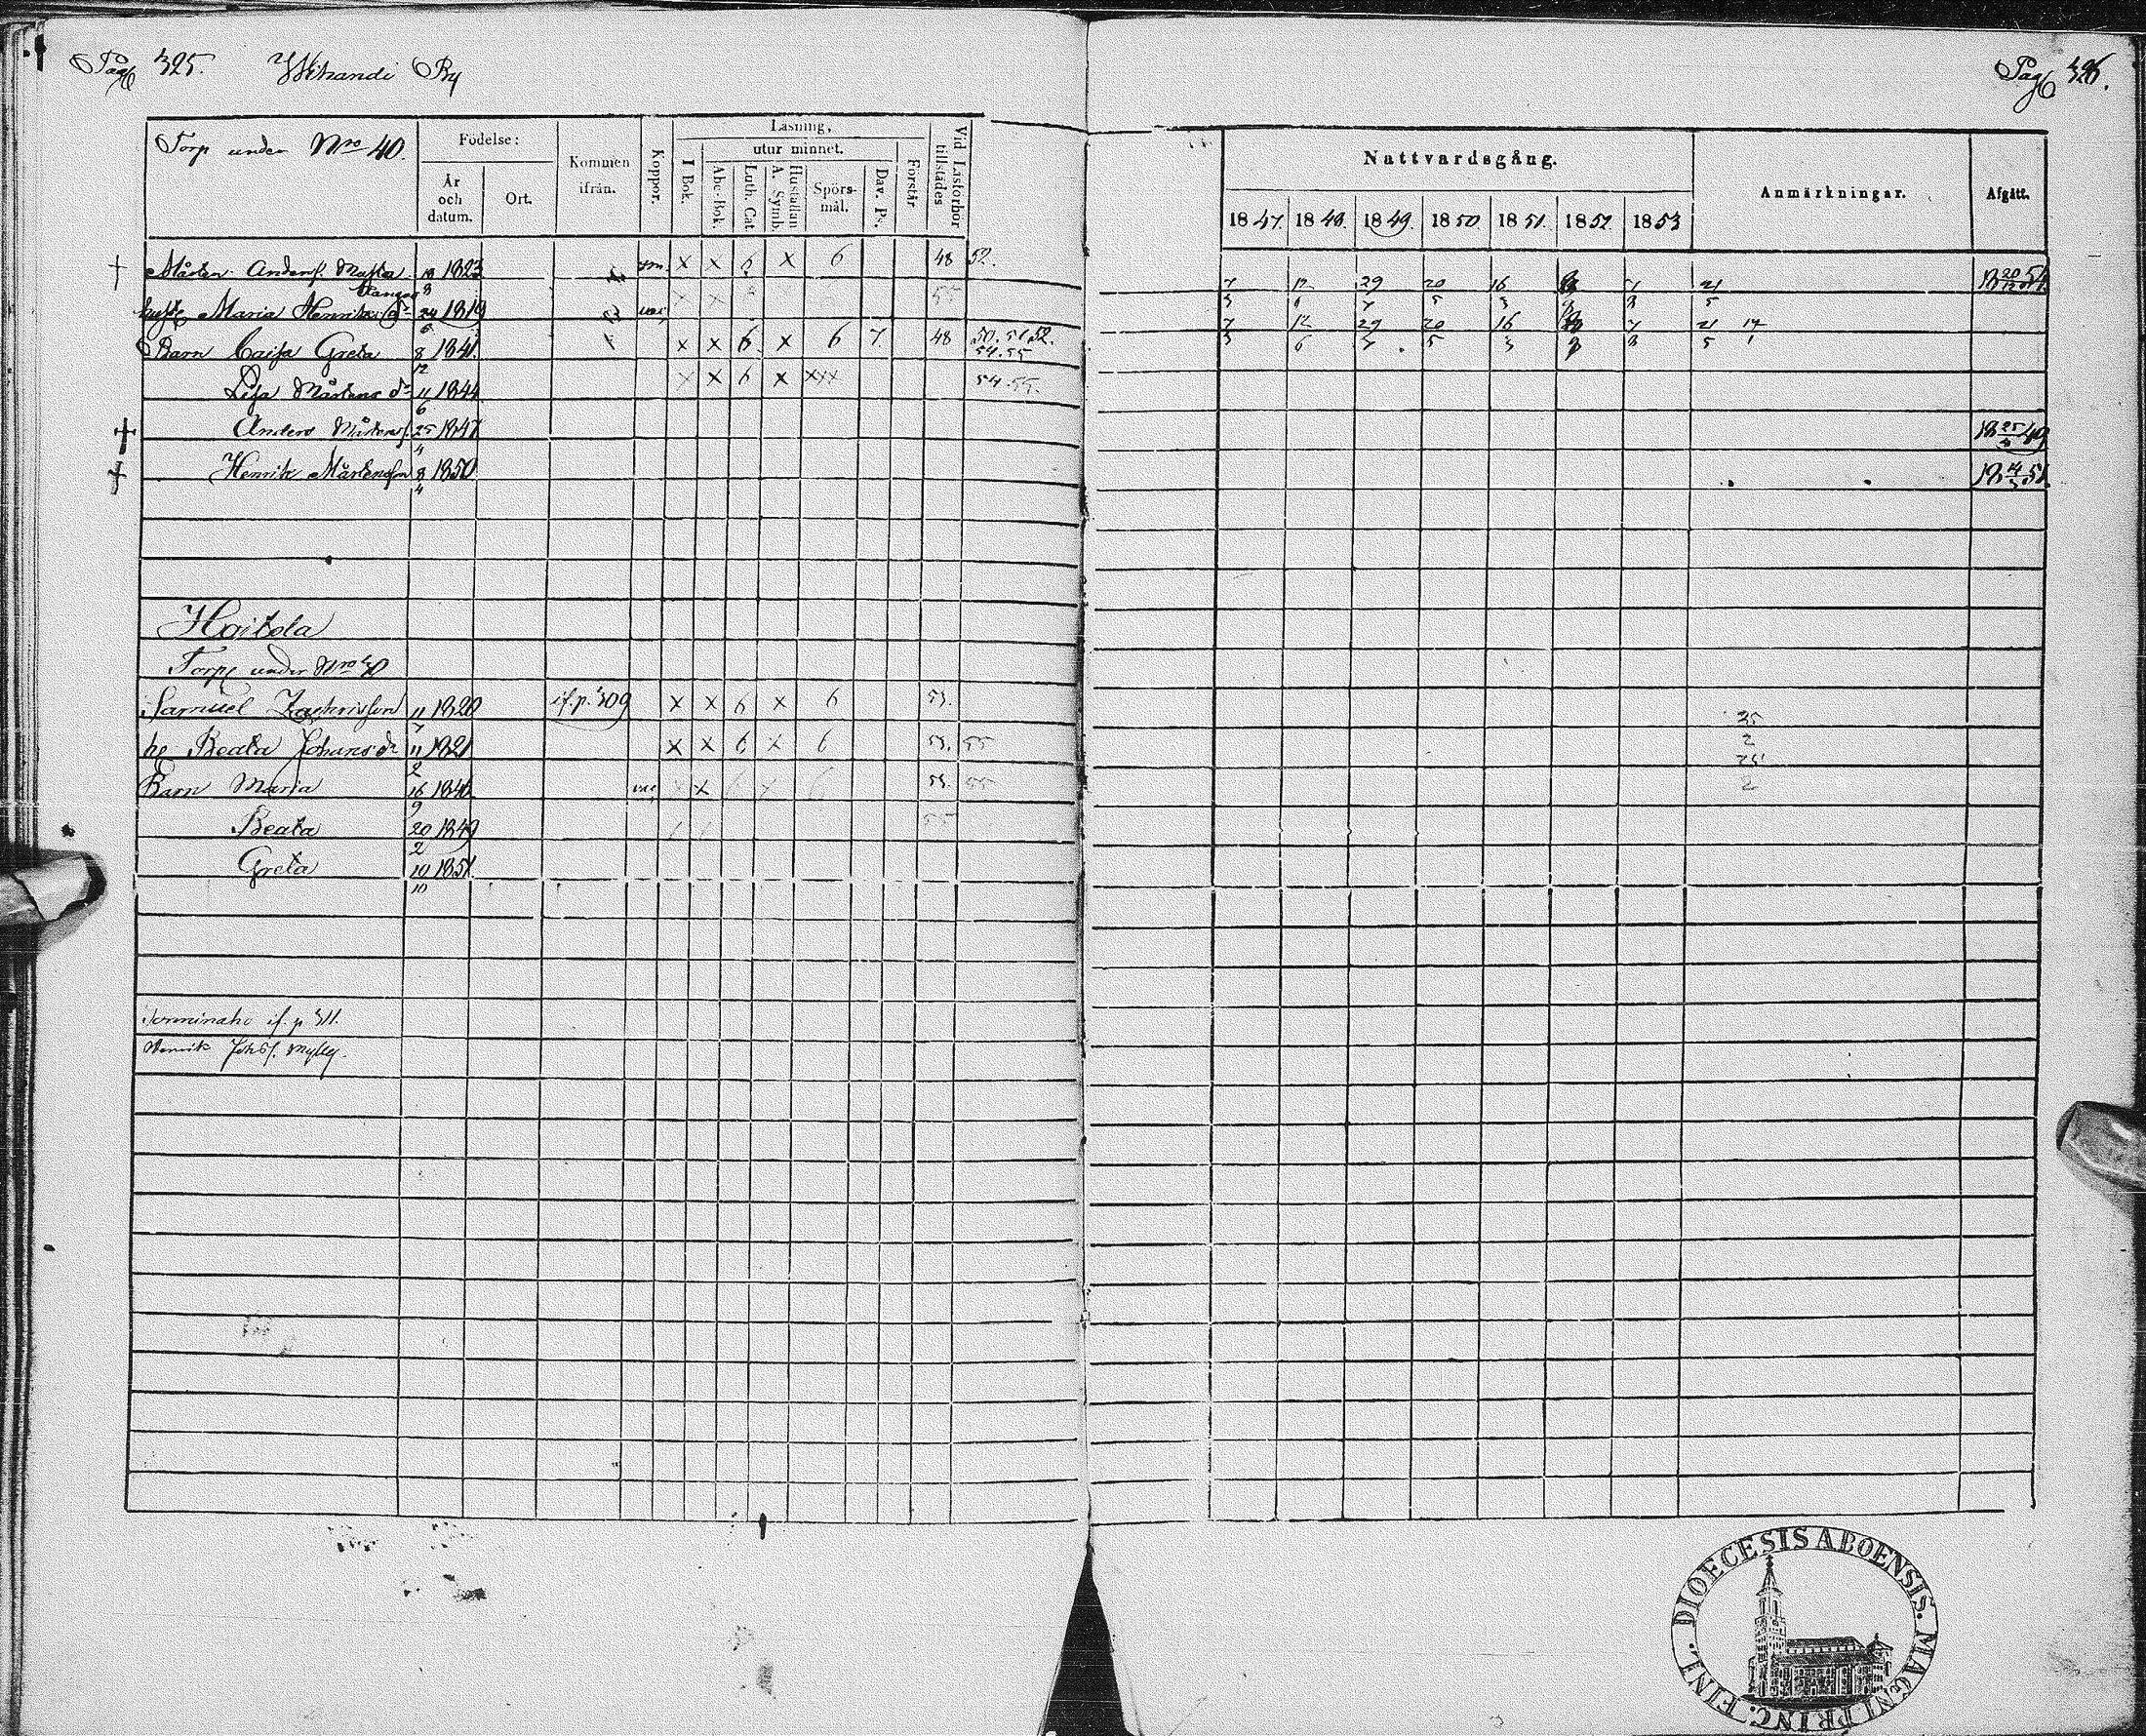 Pag 325. By
Pag 326.
Torp under Nro 40.
Födelse:
År och datum.
Ort.
Kommen ifrån.
Koppor.
Läsning,
I Bok.
utur minnet.
Abc-Bok.
Luth. Cat.
Hustaflan A. Symb.
Spörs-mål.
Dav. Ps.
Förstår
Vid Läsförhör tillstädes
Nattvardsgång.
1847. 1848. 1849. 1850 1851. 1852 1853
Anmärkningar.
Afgått.
Mårten Andersf. 18/3 1823 x x 6 x 6 48 52. 7/3 29 20 16 21/5 18 20/12 54
Maria Henriks dr 24/5 1819 vac 7/3 12/6 29 20/5 16/3 21/5
Barn Caisa Greta 8/12 1841. x x 6 x 6 7. 48 50. 51 52. 54. 55
Lisa Mårtens dr 11/6 1844 x x 6 x xxx 54. 55.
Anders Mårtensf. 25/4 1847 18 25/4 49
Henrik Mårtensson 8/4 1850 18 4/5 51
Hoitola
Torp under Nro 40
Samuel Zachrisson 11/7 1820 if. p. 309 x x 6 x 6 53. 25/2
h. Beata Johans dr 11/2 1821 x x 6 x 6 53. 55 25/2
Barn Maria 16/9 1846 vac x x 6 x 6 53. 55
Beata 20/2 1849 55
Greta 10/10 1851.
Tomminaho if. p 311.
Henrik Johsf. Mylly.
DIOECESIS ABOENSIS. MAGNI PRINC. FINL.